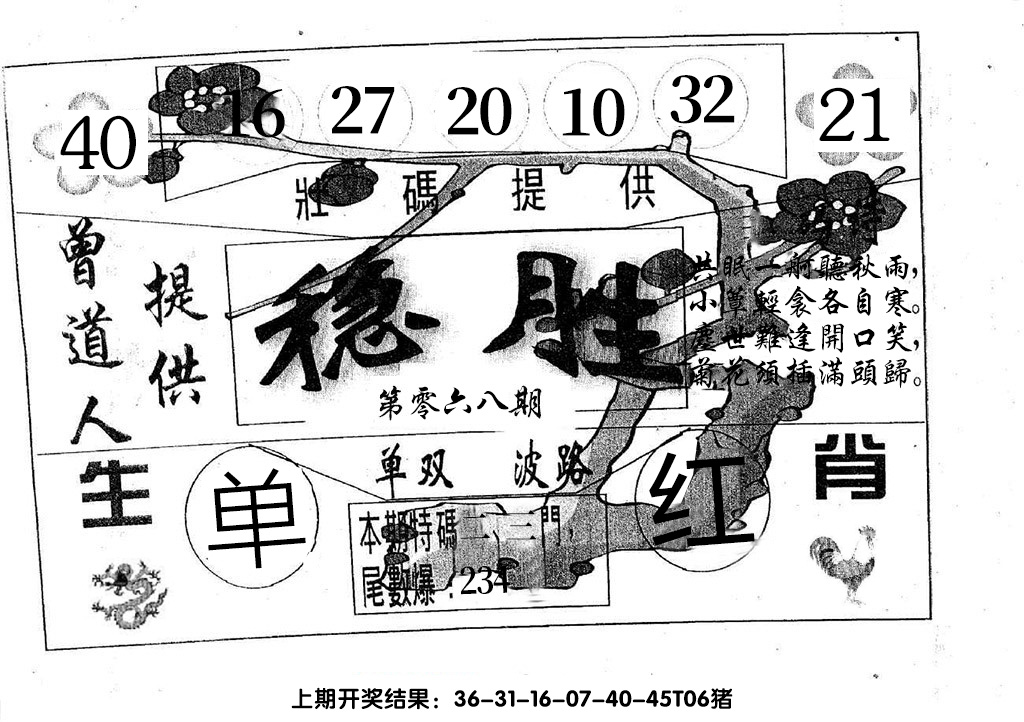 40 16 27 20 10 32 21
壯碼提供
曾道人
提供
稳胜
第零六八期
共眠一舸聽秋雨，
小簟輕衾各自寒。
塵世難逢開口笑，
菊花須插滿頭歸。
单双 波路
生肖
单
红
本期特碼二、三門，
尾數爆：234
上期开奖结果：36-31-16-07-40-45T06猪